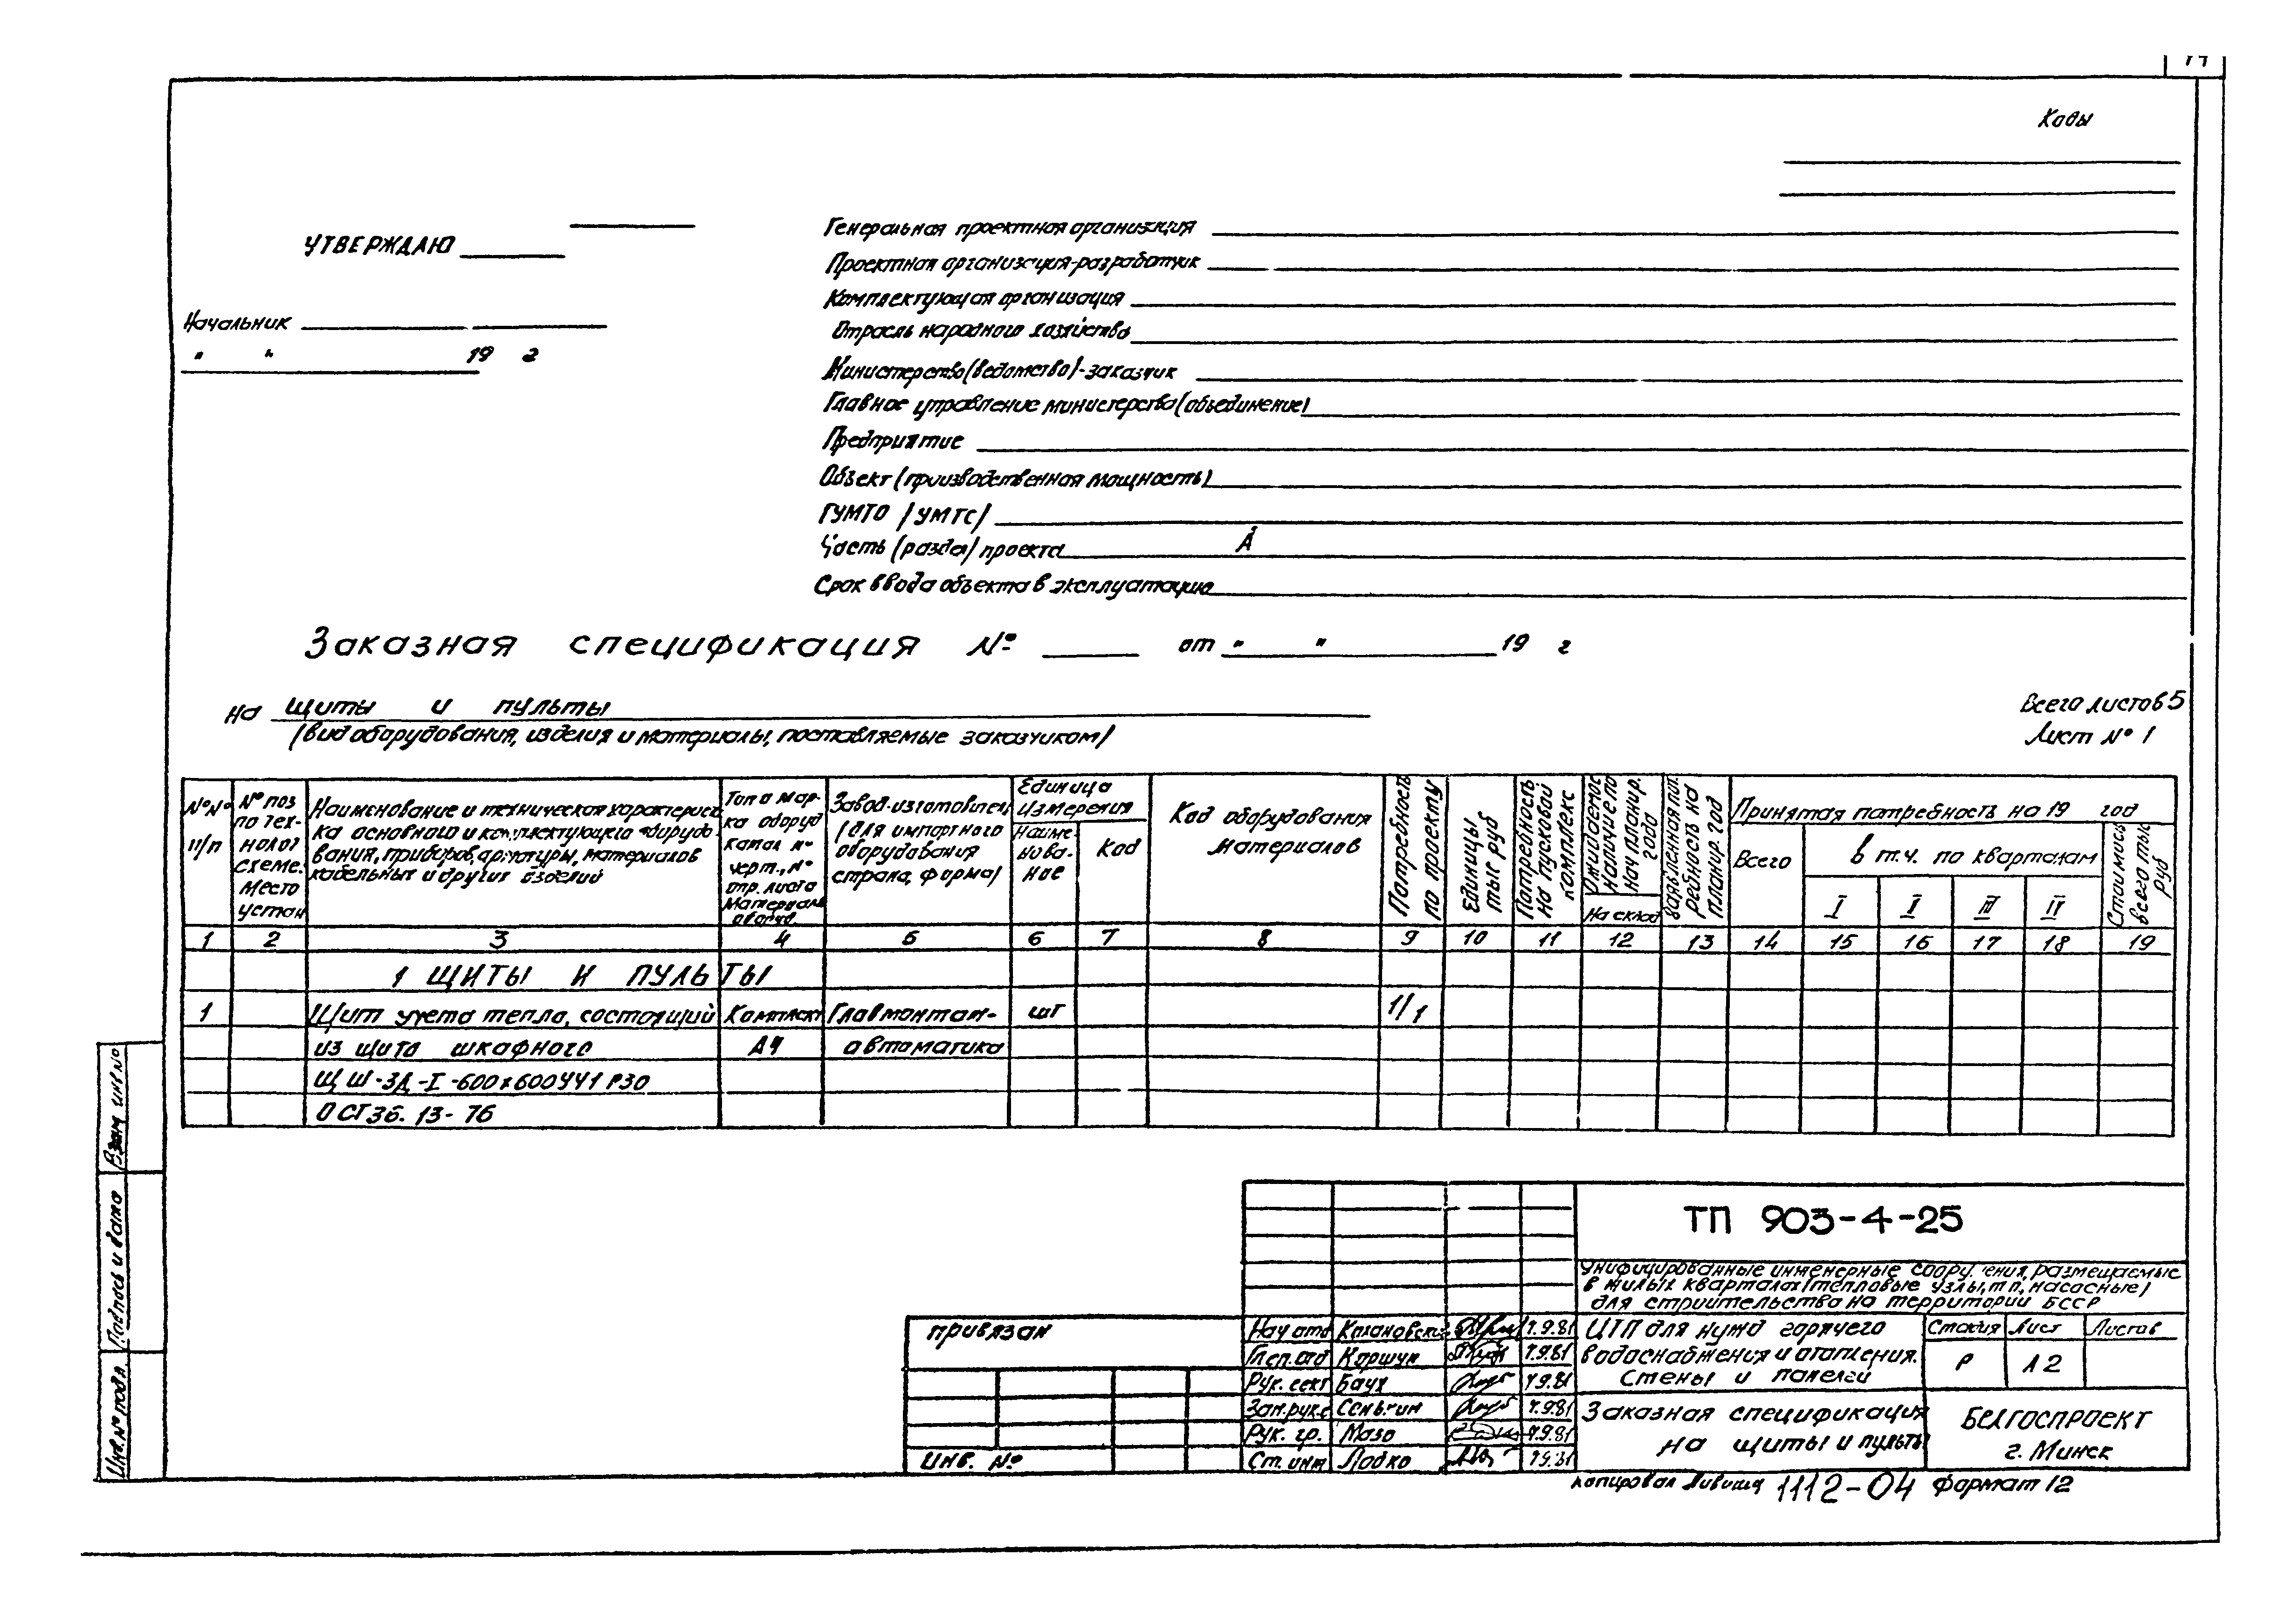 Коды
УТВЕРЖДАЮ
Генеральная проектная организация
Проектная организация-разработчик
Комплектующая организация
Начальник
Отрасль народного хозяйства
" " 19 г
Министерство (ведомство)-заказчик
Главное управление министерства (объединение)
Предприятие
Объект (производственная мощность)
ГУМТО /УМТС/
Часть (раздел) проекта А
Срок ввода объекта в эксплуатацию
Заказная спецификация № от " " 19 г
На щиты и пульты
(вид оборудования, изделия и материалы, поставляемые заказчиком)
Всего листов 5
Лист № 1
№№ п/п
№ поз по тех-нолог схеме. Место устан
Наименование и техническая характерист
ка основного и комплектующего оборудо
вания, приборов, арматуры, материалов
кабельных и других изделий
Тип о мар-
ка оборуд
катал №
черт., №
опр. листа
Материал
оборуд.
Завод-изготовитель
(для импортного
оборудования
страна, форма)
Единица
измерения
Наиме-
нова-
ние
Код
Код оборудования
материалов
Потребность
по проекту
Единицы
тыс руб
Потребность
на пусковой
комплекс
Ожидаемое
наличие на
нач планир.
года
На склад
Заявленная пот.
ребность на
планир. год
Принятая потребность на 19 год
Всего
в т.ч. по кварталам
I I III IV
Стоимость
всего тыс
руб
1 2 3 4 5 6 7 8 9 10 11 12 13 14 15 16 17 18 19
1 ЩИТЫ И ПУЛЬТЫ
1 Щит учета тепла, состоящий Комплект Главмонтаж- шт 1/1
из щита шкафного А4 автоматика
ЩШ-ЗД-I-600х600УЧ1 Р30
ОСТ36.13-76
Взам инв №
Подпись и дата
Инв.№ подл.
ТП 903-4-25
Унифицированные инженерные сооружения, размещаемые
в жилых кварталах (тепловые узлы, тп, насосные)
для строительства на территории БССР
привязан
Инв. №
Нач отд 7.9.81
Гл сп. отд Коршун 7.9.81
Рук. сект Баух 7.9.81
Зам.рук.с Сеньгин 7.9.81
Рук. гр. Мазо 7.9.81
Ст. инж Ладко 7.9.81
ЦТП для нужд горячего
водоснабжения и отопления.
Стены и панелей
Стадия Лист Листов
Р А2
Заказная спецификация
на щиты и пульты
БЕЛГОСПРОЕКТ
г. Минск
Копировал 1112-04 Формат 12